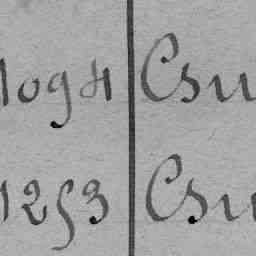 1094 Csu
1253 Csu